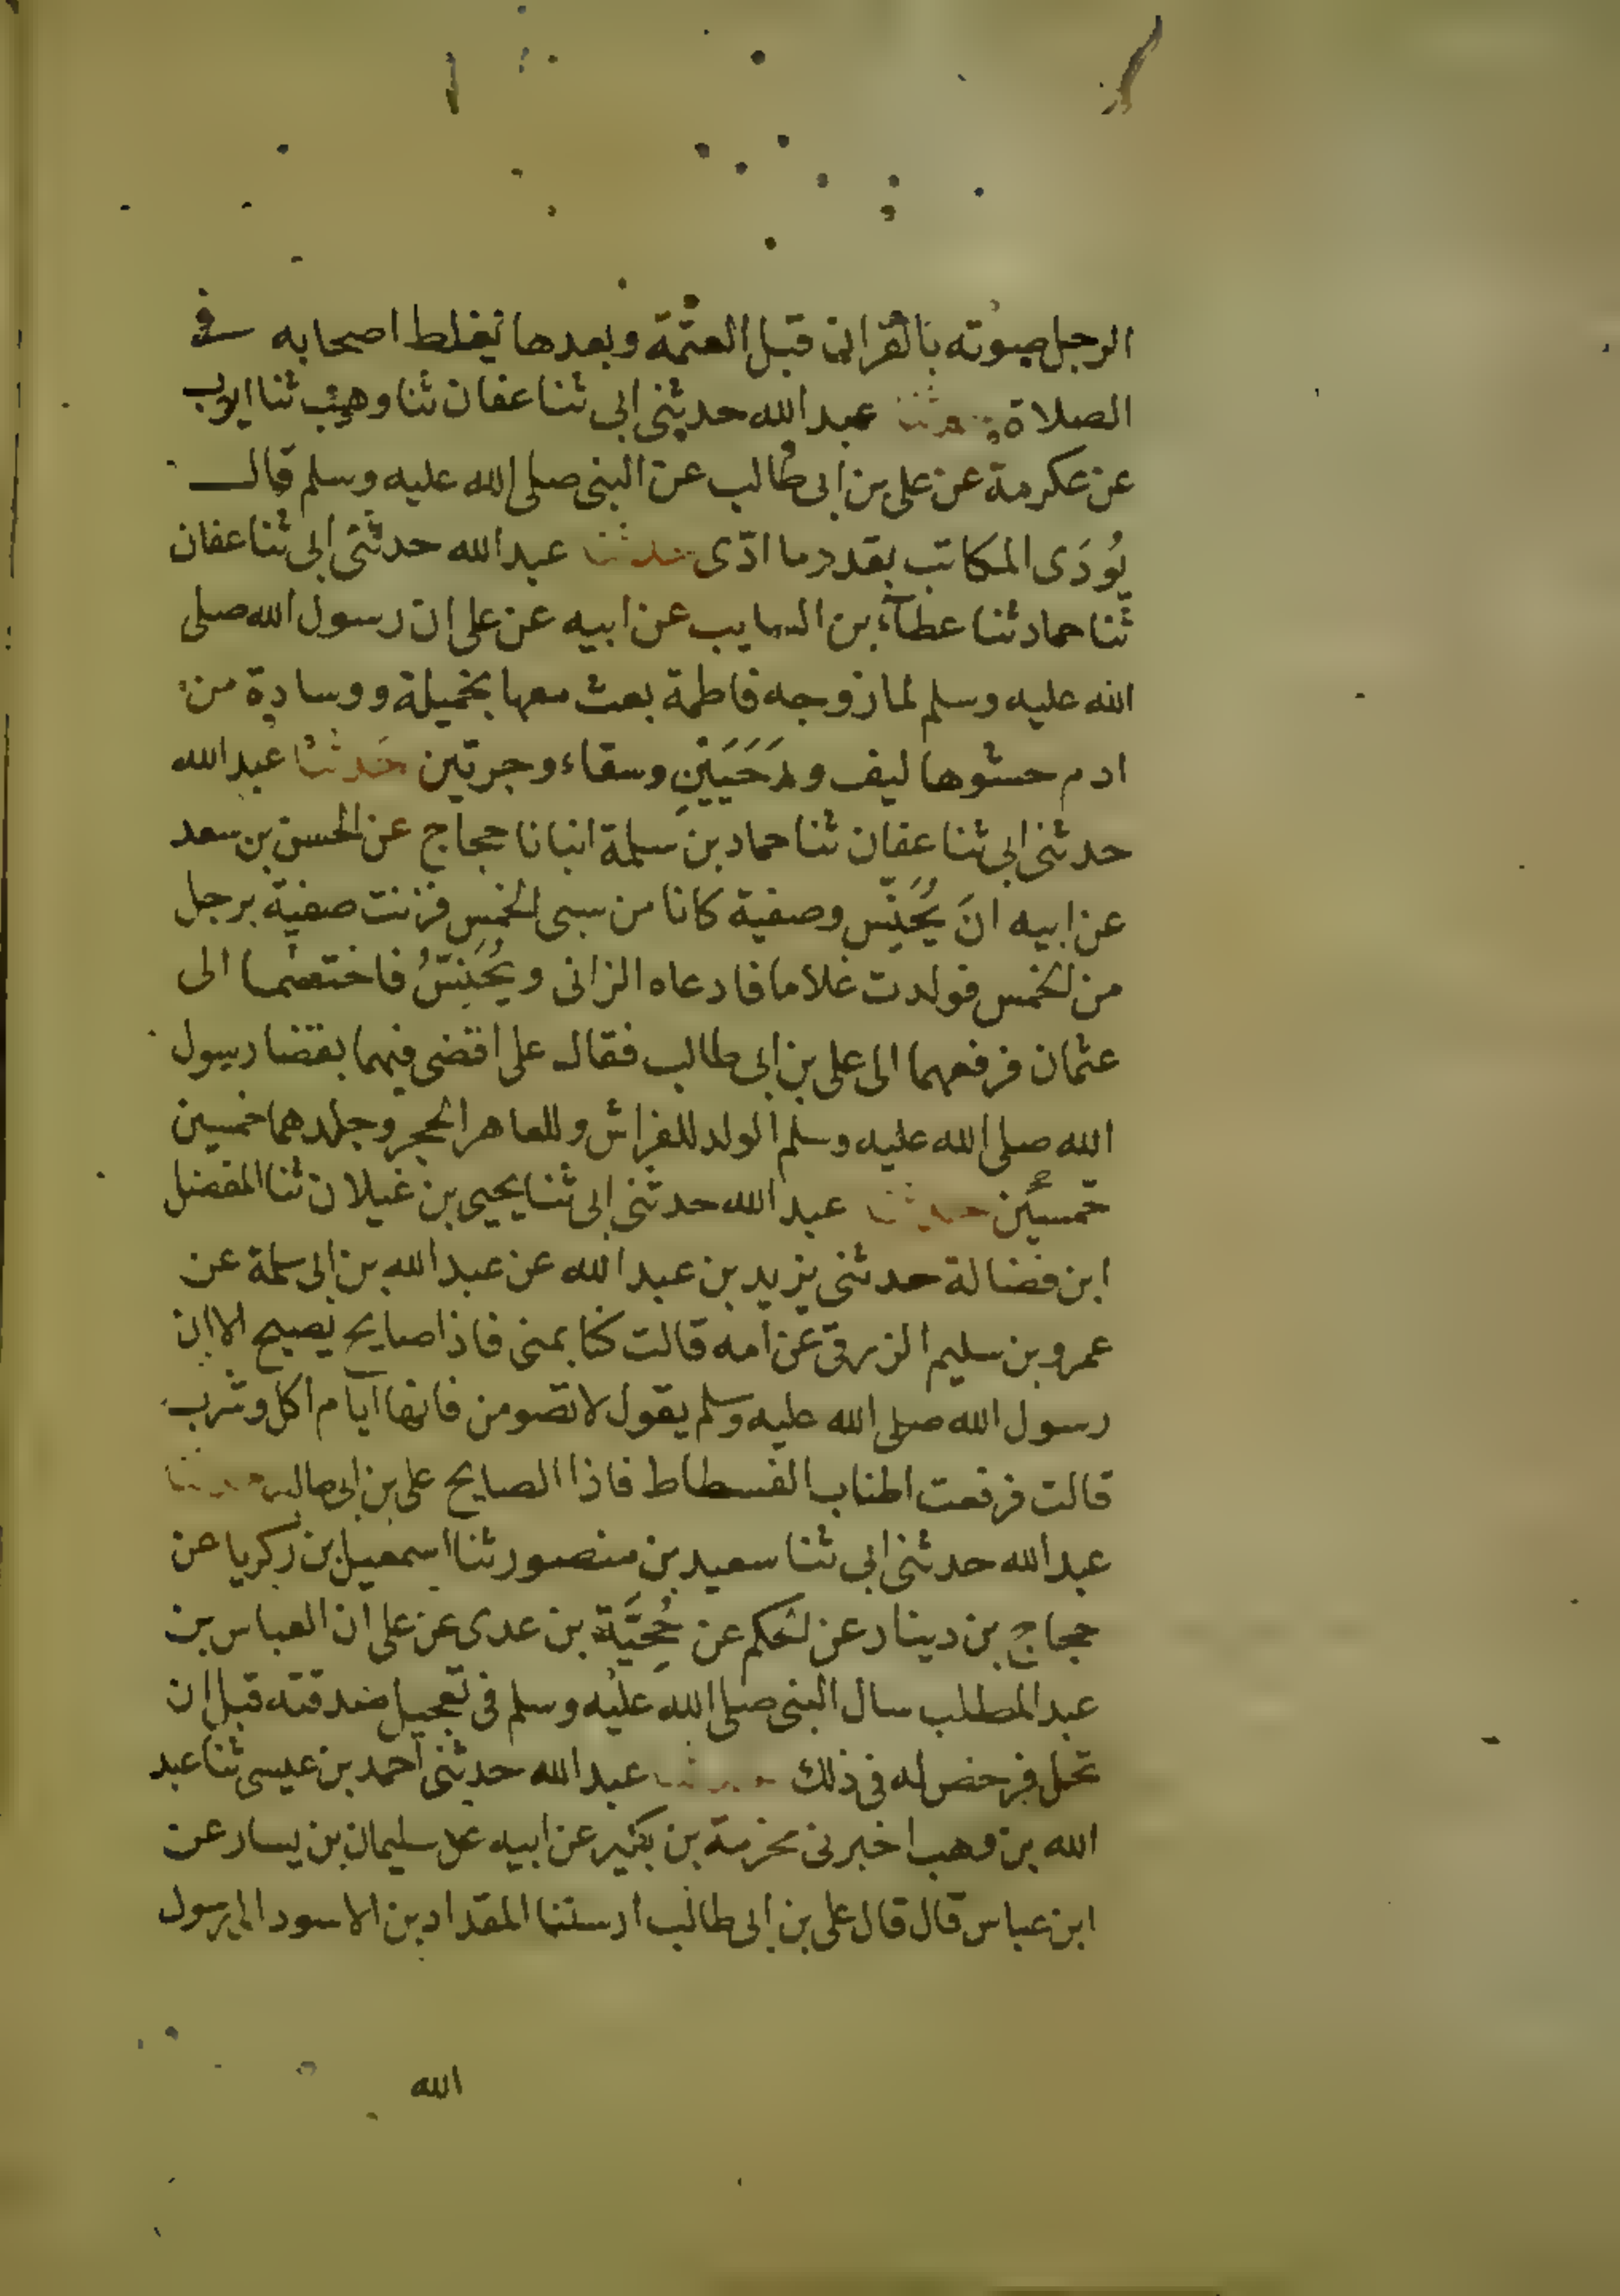 الرجل صوته بالقران قبل العتمة وبعدها يغلط اصحابه في
الصلاة حدثنا عبد الله حدثني ابي ثنا عفان ثنا وهيب ثنا ايوب
عن عكرمة عن على بن ابى طالب عن النبى صلى الله عليه وسلم قال
يُودَى المكاتب بقدر ما ادّى حدثنا عبد الله حدثنى ابى ثنا عفان
ثنا حماد ثنا عطاء بن السايب عن ابيه عن على ان رسول الله صلى
الله عليه وسلم لما زوجه فاطمة بعث معها بخميلة ووسادة من
ادم حشوها ليف ورَحَيَيْنِ وسقاء وجرتين حدثنا عبد الله
حدثنى ابى ثنا عفان ثنا حماد بن سلمة انبانا حجاج عن الحسن بن سعد
عن ابيه انَ يُحَنّس وصفية كانا من سبى الخمس فزنت صفية برجل
من الخمس فولدت غلاما فادعاه الزانى ويُحَنِسُ فاختصما الى
عثمان فرفعهما الى على بن ابى طالب فقال على اقضى فيهما بقضا رسول
الله صلى الله عليه وسلم الولد للفراش وللعاهر الحجر وجلدهما خمسين
خمسين حدثنا عبد الله حدثنى ابى ثنا يحيى بن غيلان ثنا المفضل
ابن فضالة حدثنى يزيد بن عبد الله عن عبد الله بن ابى سلمة عن
عمرو بن سليم الزرقى عن امه قالت كنا بمنى فاذا صايح يصيح الا ان
رسول الله صلى الله عليه وسلم يقول لا تصومن فانها ايام اكل وشرب
قالت فرفعت اطناب الفسطاط فاذا الصايح على بن ابى طالب حدثنا
عبد الله حدثنى ابى ثنا سعيد بن منصور ثنا اسمعيل بن زكريا عن
حجاج بن دينار عن الحكم عن حُجَيَّة بن عدى عن على ان العباس بن
عبد المطلب سال النبى صلى الله عليه وسلم فى تعجيل صدقته قبل ان
تحل فرخص له فى ذلك حدثنا عبد الله حدثنى احمد بن عيسى ثنا عبد
الله بن وهب اخبرنى مخرمة بن بكير عن ابيه عن سليمان بن يسار عن
ابن عباس قال قال على بن ابى طالب ارسلنا المقداد بن الاسود الى رسول
الله